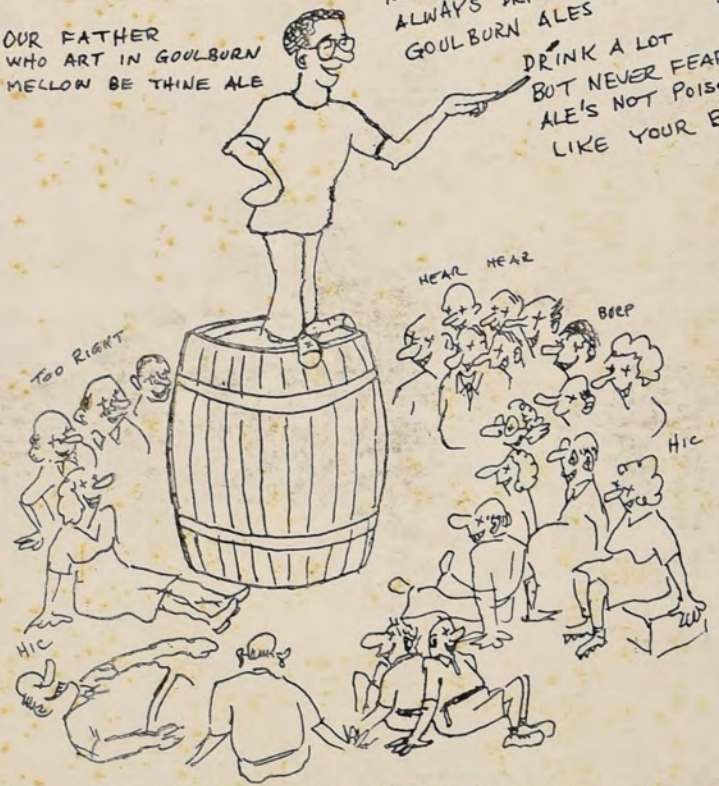 OUR FATHER
WHO ART IN GOULBURN
MELLOW BE THINE ALE
ALWAYS
GOULBURN ALES
DRINK A LOT
BUT NEVER FEAR
ALE'S NOT
LIKE YOUR
HEAR HEAR
BURP
TOO RIGHT
HIC
HIC